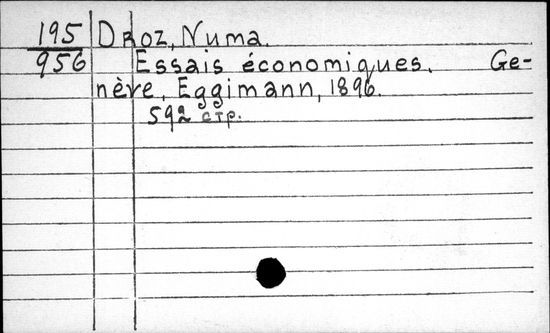 195 Droz, Numa.
956 Essais économiques. Ge-
nève, Eggimann, 1896.
592 стр.